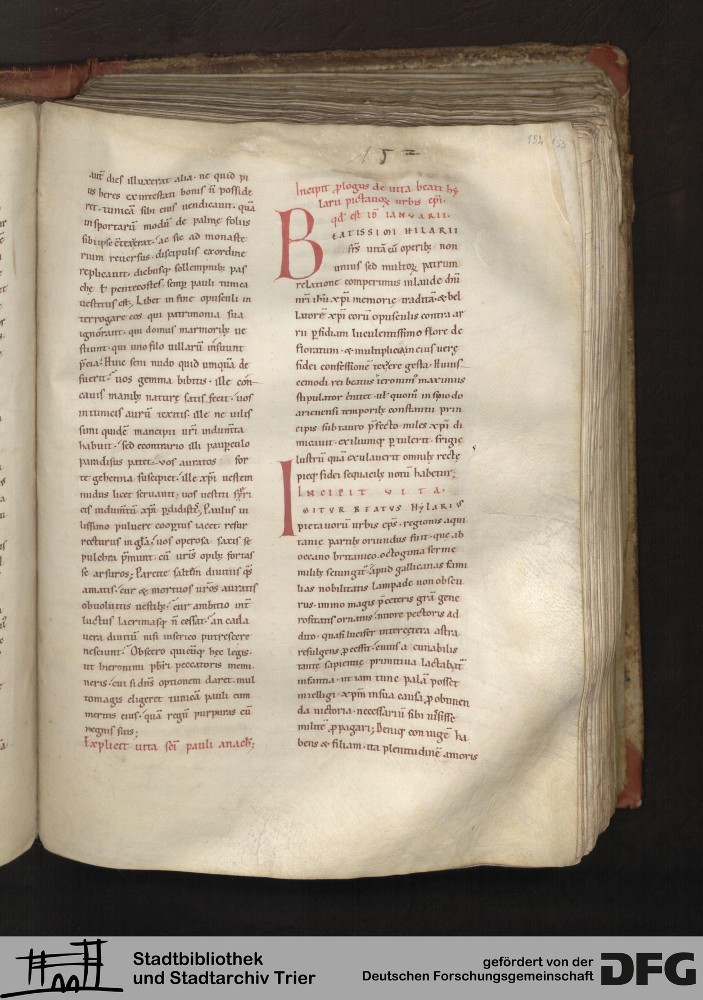 152
152 153
autē dies illuxerat alia · ne quid pi
us heres ex intestati bonis n̄ posside
ret · tunicā sibi eius vendicavit · quā
in sportarū modū de palmę foliis
sibi ipse contexerat · ac sic ad monaste
rium reversus · discipulis ex ordine
replicavit · diebusque sollempnibꝫ pas
chę & pentecostes · semp pauli tunica
vestitus est; Libet in fine opusculi in
terrogare eos qui patrimonia sua
ignorant · qui domus marmoribꝫ ve
stiunt · qui uno filo villarū insuunt
p̄cia · Huic seni nudo quid umquā de
fuerit · vos gemma bibitis · ille con
cavis manibꝫ naturę satis fecit · vos
in tunicis aurū texitis · ille ne vilis
simi quidē mancipii vr̄i indumtā
habuit · sed econtrario illi paupculo
paradisus patet · vos auratos
te gehenna suscipiet · ille xp̄i vestem
nudus licet servavit · vos vestiti syri
cis indumtū xp̄i pdidistis; Paulus vi
lissimo pulvere coopertus iacet · resur
recturus in gl̄a · vos operosa saxis se
pulchra p̄munt · cū vr̄is opibꝫ
se arsuros; Parcite saltem divitiis qs
amatis · cur & mortuos vr̄os auratis
obvolvitis vestibꝫ · cur ambitio int
luctus lacrimasque n̄ cessat · an cada
vera divitū nisi in serico putrescere
nesciunt · Obsecro quicūque hęc legis ·
ut hieronimi pbr̄i peccatoris memi
neris · cui si dn̄s optionem daret · mul
to magis eligeret tunicā pauli cum
meritis eius · quā regū purpuras cū
regnis suis;
Explicit vita sc̄i pauli anach̄;
Incipit plogus de vita beati hy
larii pictavorꝫ urbis ep̄i ·
qd̄ est id̄ ianvarii ·
BEATISSIMI HILARII
frs vitā cū operibꝫ non
unius sed multorꝫ patrum
relatione comperimus in laude dn̄i
nr̄i ihū xp̄i memorię traditā · & bel
latorē xp̄i eorū opusculis contra ar
ru pfidiam luculentissimo flore de
floratum · & multiplicem eius verę
fidei confessionē texere gesta · Huius
cemodi rei beatus ieronim̄ maximus
stipulator enitet · ubi quom̄ in synodo
arienensi temporibꝫ constantii prin
cipis sub tauro p̄fecto miles xp̄i di
micavit · exiliumque ptulerit · frigie
lustrū quā exulaverit omnibꝫ rectę
pieque fidei sequacibꝫ notū habetur;
INCIPIT VITA ·
IGITUR BEATUS HYLARIUS
pictavorū urbis ep̄s · regionis aqui
tanię partibꝫ oriundus fuit · quę ab
oceano britanico octoginta ferme
milibꝫ seiungit · apud gallicanas fami
lias nobilitatis lampade non obscu
rus · immo magis p̄ ceteris gr̄a gene
rositatis ornatus · nitore pectoris ad
dito · quasi lucifer inter cetera astra
refulgens pcessit · cuius a cunabilis
tantę sapientię primitiva lactabat
infantia · ut iam tunc palā posset
intelligi · xp̄m in sua causa p obtinen
da victoria · necessariū sibi iussisse
militē ppagari; Denique coniugē ha
bens & filiam · ita plenitudinē amoris
Stadtbibliothek
und Stadtarchiv Trier
gefördert von der
Deutschen Forschungsgemeinschaft
DFG